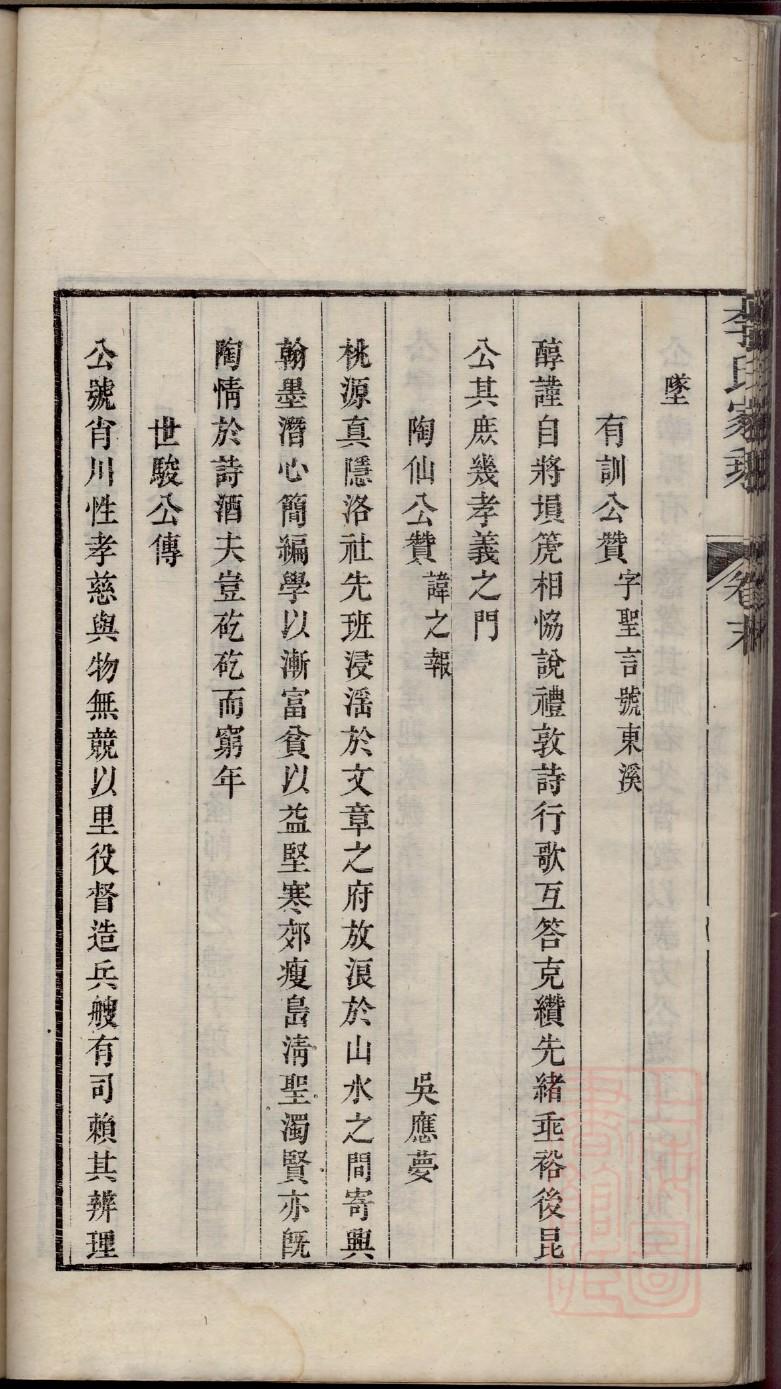 李氏家乘
卷末
墜
有訓公贊 字聖言號東溪
醇謹自將塤箎相恊說禮敦詩行歌互答克纘先緒垂裕後昆
公其庶幾孝義之門
陶仙公贊 諱之報 吳應夢
桃源真隱洛社先班浸滛於文章之府放浪於山水之間寄興
翰墨潛心簡編學以漸富貧以益堅寒郊瘦島清聖濁賢亦既
陶情於詩酒夫豈矻矻而窮年
世駿公傳
公號肖川性孝慈與物無競以里役督造兵艘有司賴其辨理